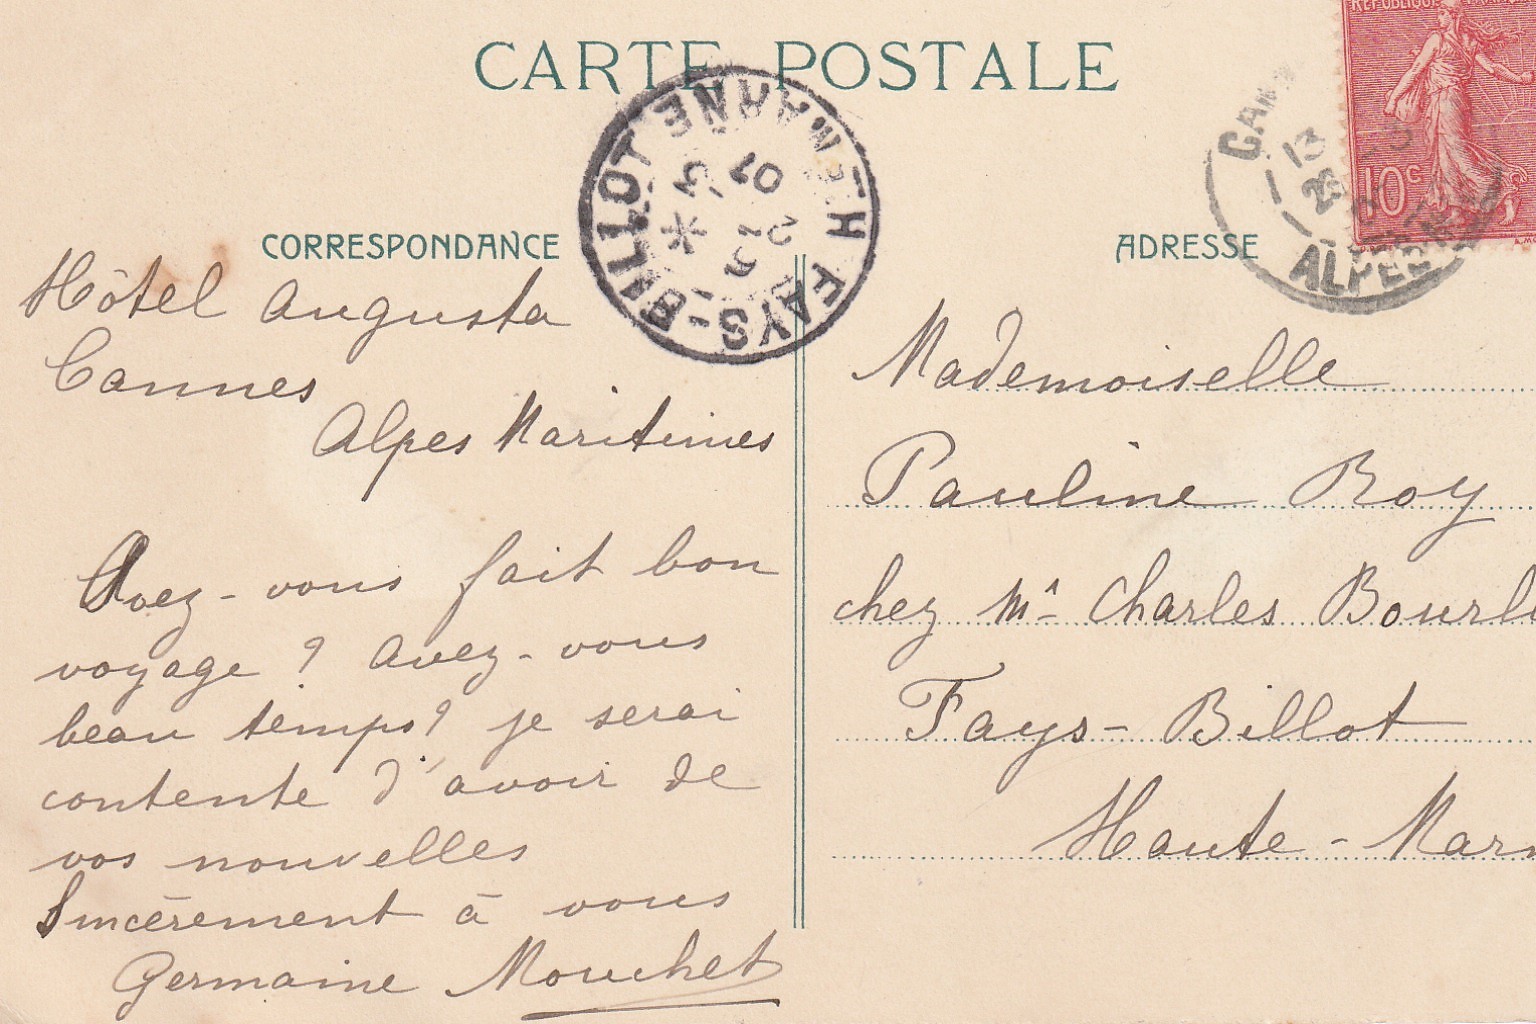 CARTE POSTALE
CORRESPONDANCE
Hôtel Augusta
Cannes
Alpes Maritimes
Avez-vous fait bon
voyage ? Avez-vous
beau temps ? je serai
contente d'avoir de
vos nouvelles
Sincèrement à vous
Germaine Mouchet
FAYS-BILLOT
HTE MARNE
07
ADRESSE
10c
ALPES
Mademoiselle
Pauline Roy
chez Mr Charles
Fays-Billot
Haute-